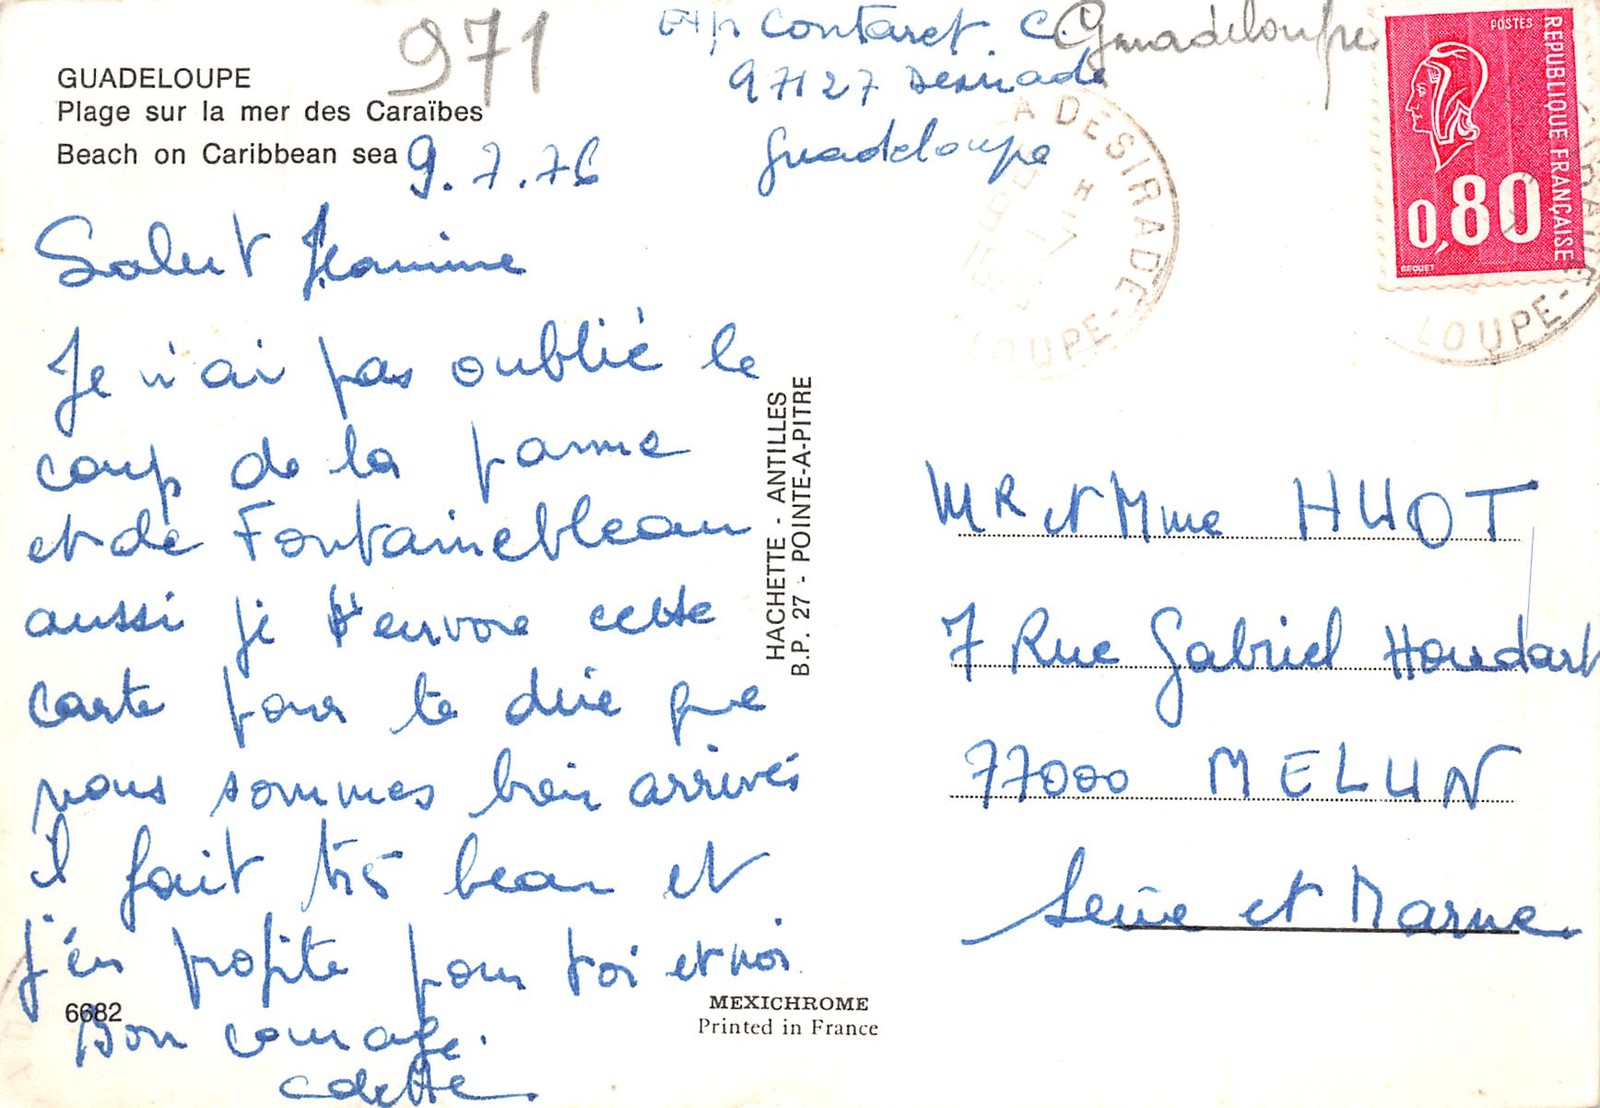 971
GUADELOUPE
Plage sur la mer des Caraïbes
Beach on Caribbean sea
9.7.76
Exp Contaret. C. Guadeloupe
97127 Desirade
Guadeloupe
Salut Jeannine
Je n'ai pas oublié le
coup de la panne
et de Fontainebleau
aussi je t'envore cette
carte pour te dire que
nous sommes bien arrivés
il fait très beau et
j'en profite pour toi et moi
Bon courage.
Odette.
6682
HACHETTE - ANTILLES
B.P. 27 - POINTE-A-PITRE
MEXICHROME
Printed in France
POSTES
REPUBLIQUE FRANÇAISE
0,80
BEQUET
A DESIRADE -
LOUPE -
LOUPE -
MR et Mme HUOT
7 Rue Gabriel Houdart
77000 MELUN
Seine et Marne